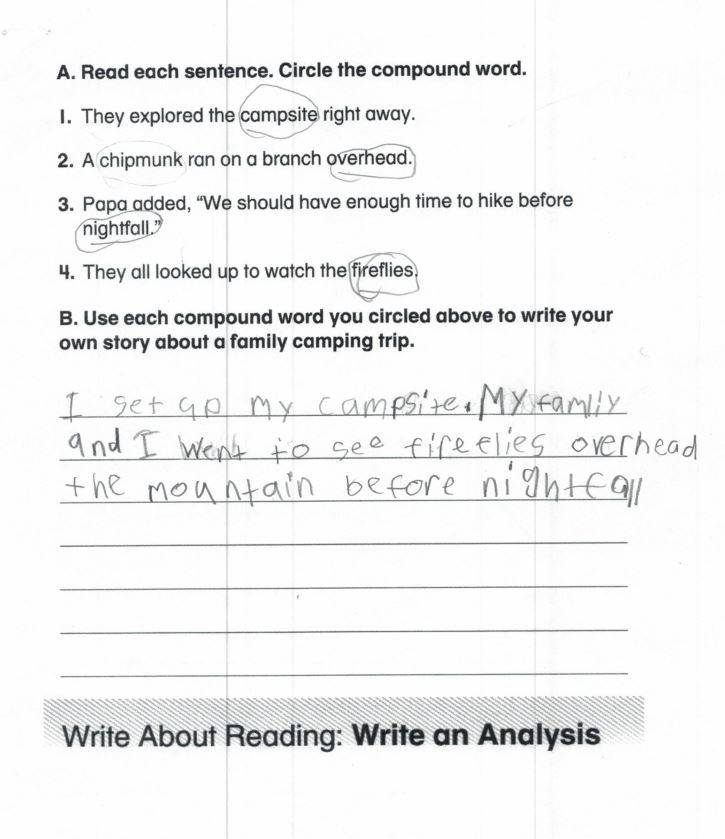 A. Read each sentence. Circle the compound word.
1. They explored the campsite right away.
2. A chipmunk ran on a branch overhead.
3. Papa added, “We should have enough time to hike before
nightfall.”
4. They all looked up to watch the fireflies.
B. Use each compound word you circled above to write your
own story about a family camping trip.
I set up my campsite. My famliy
and I went to see fireflies overhead
the mountain before nightfall
Write About Reading: Write an Analysis